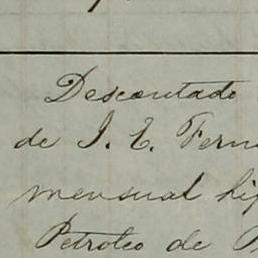 Descontado
de J. E. Fern
mensual hip
Petroleo de